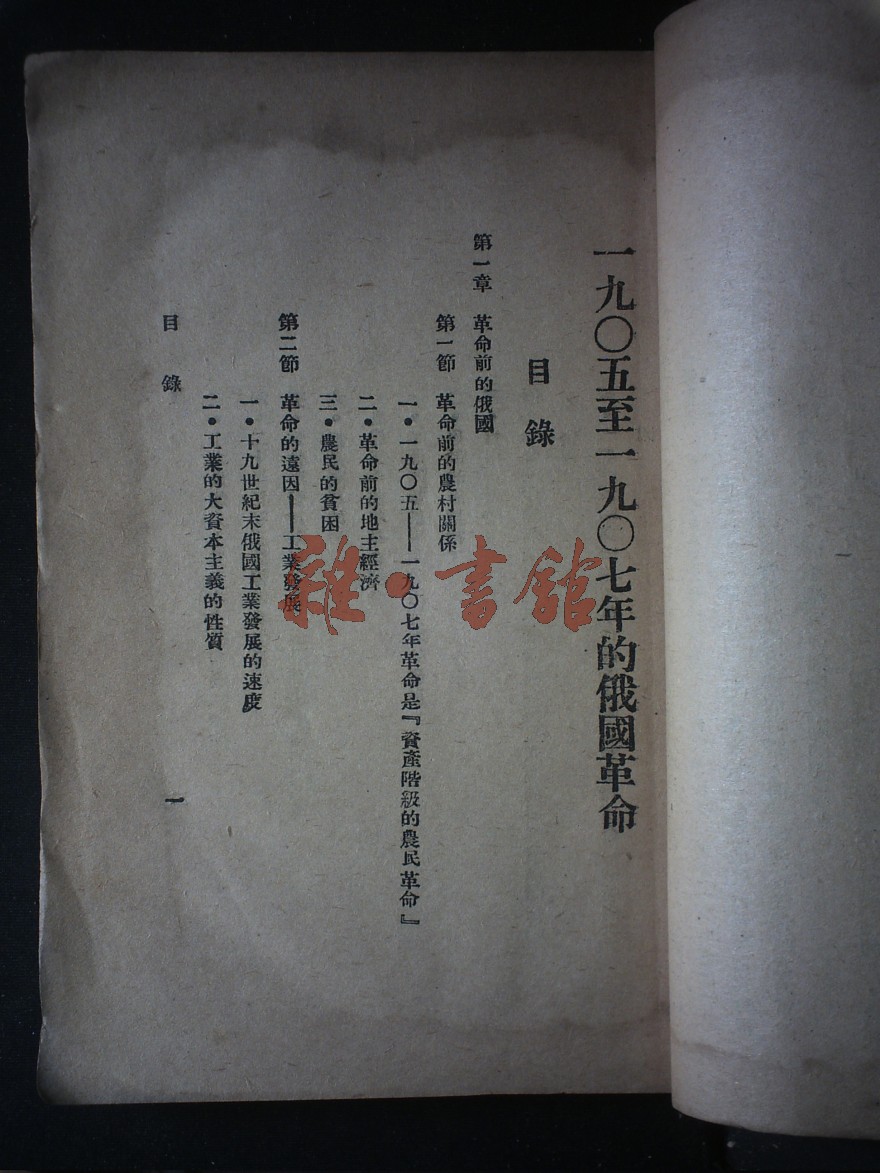 一九〇五至一九〇七年的俄國革命
目錄
第一章 革命前的俄國
第一節 革命前的農村關係
一·一九〇五——一九〇七年革命是『資產階級的農民革命』
二·革命前的地主經濟
三·農民的貧困
第二節 革命的遠因——工業發展
一·十九世紀末俄國工業發展的速度
二·工業的大資本主義的性質
目錄
一
雜·書館